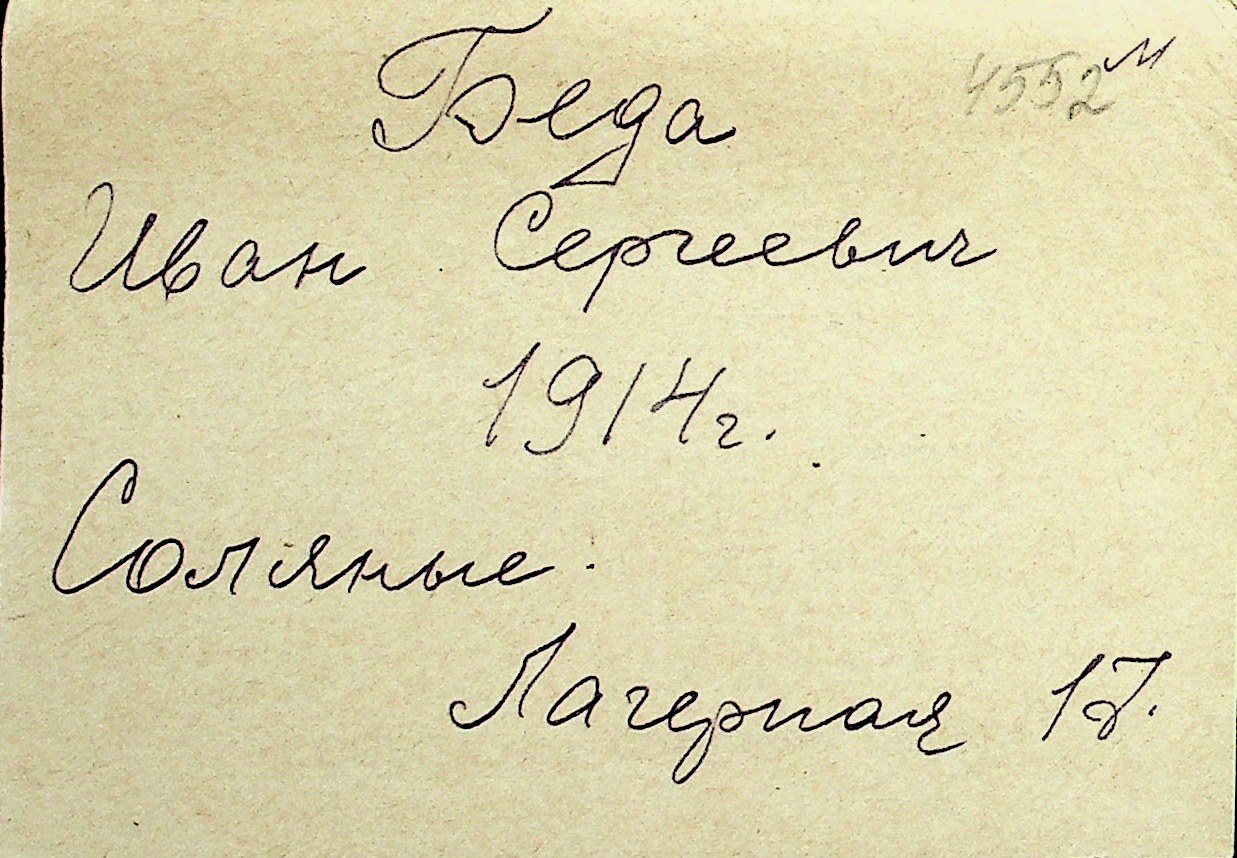 4552 м
Беда
Иван Сергеевич
1914г.
Соляные.
Лагерная 17.